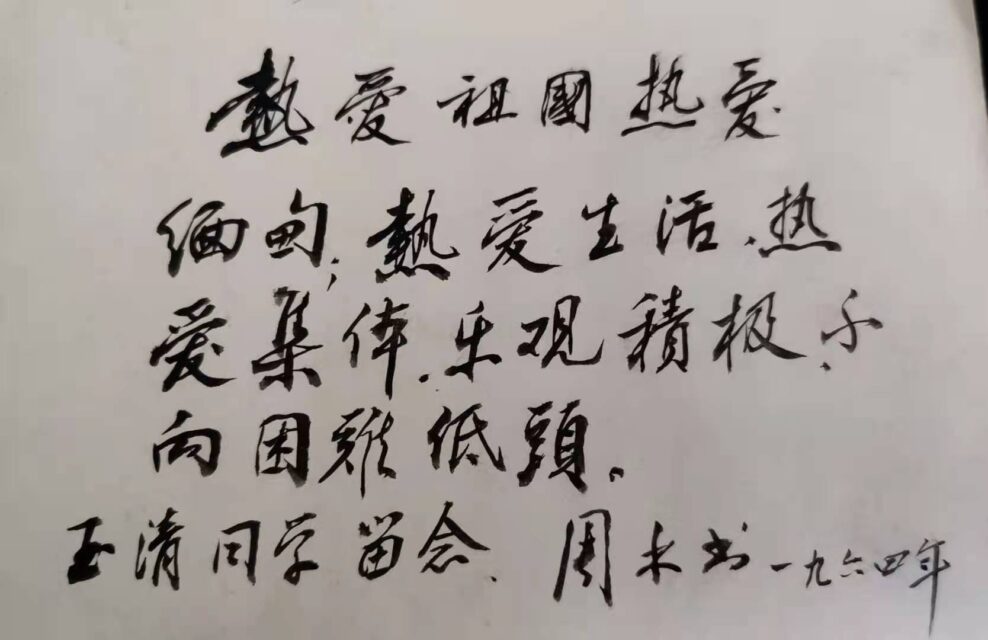 熱愛祖國热爱
缅甸;熱爱生活.热
爱集体.乐观積极、不
向困难低頭。
玉清同学留念、周禾书一九六四年